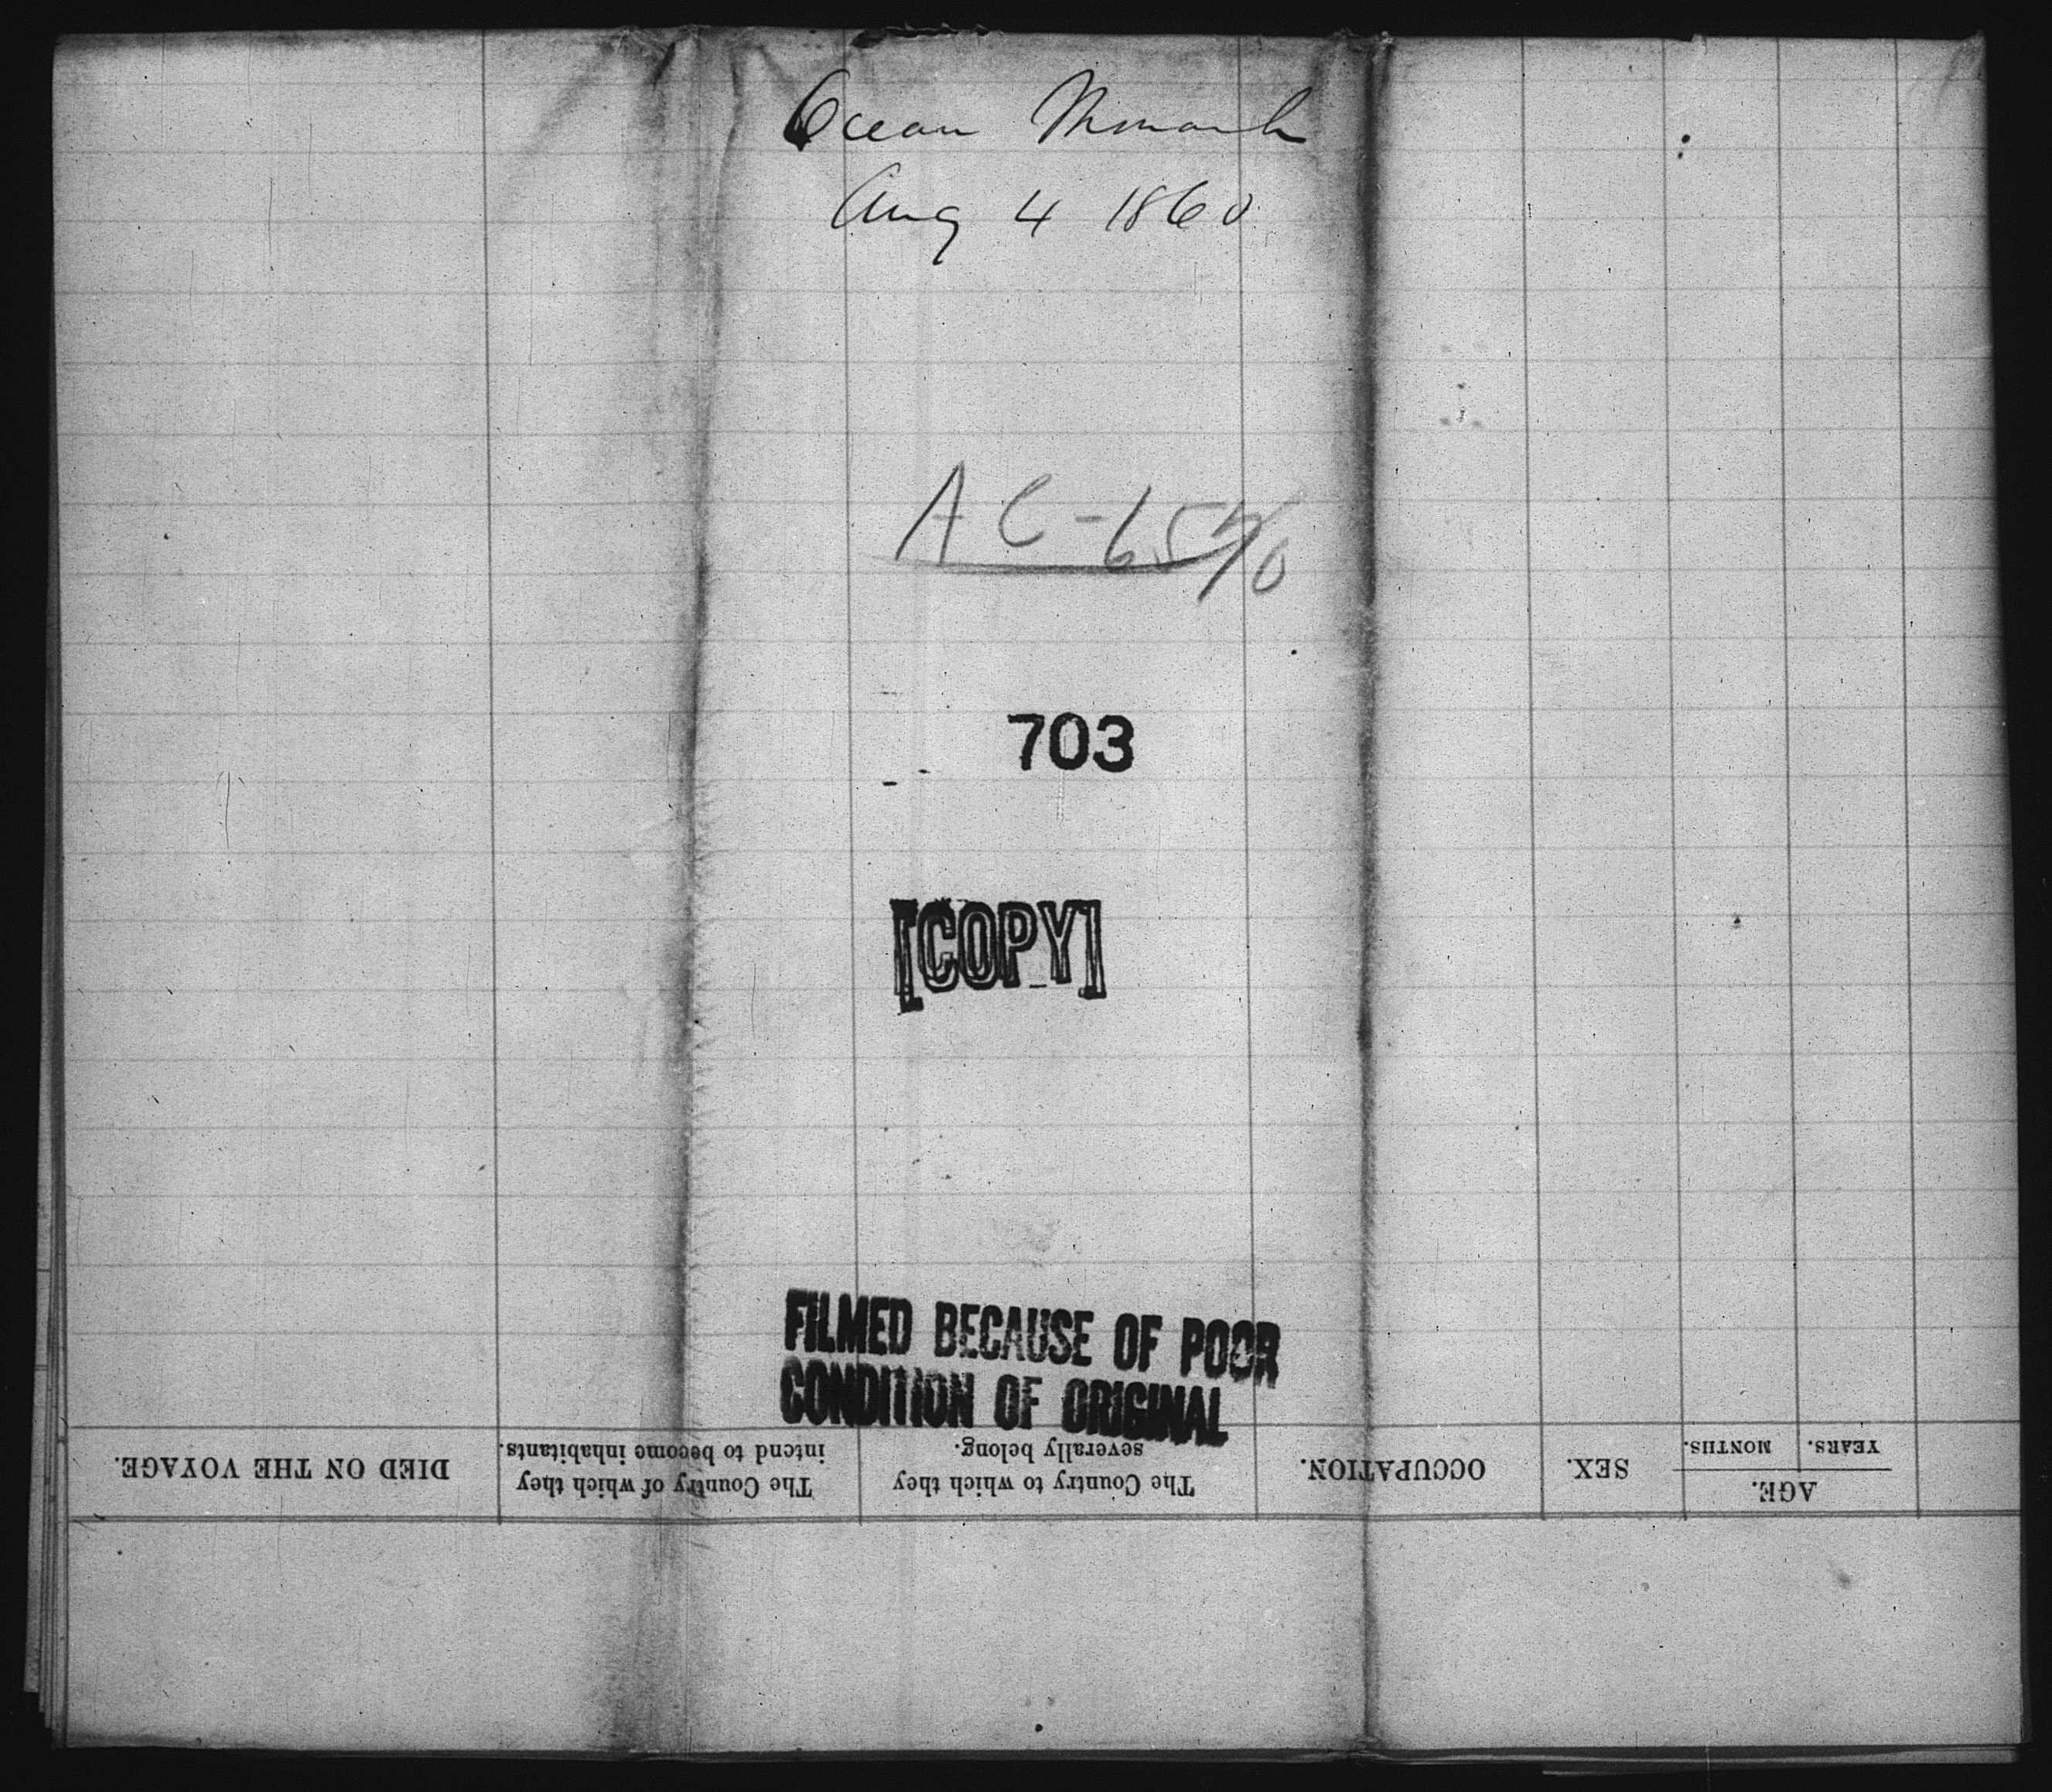 Ocean Monarch
Aug 4 1860
703
[COPY]
FILMED BECAUSE OF POOR
CONDITION OF ORIGINAL
AGE.
YEARS.
MONTHS.
SEX.
OCCUPATION.
The Country to which they
severally belong.
The Country of which they
intend to become inhabitants.
DIED ON THE VOYAGE.